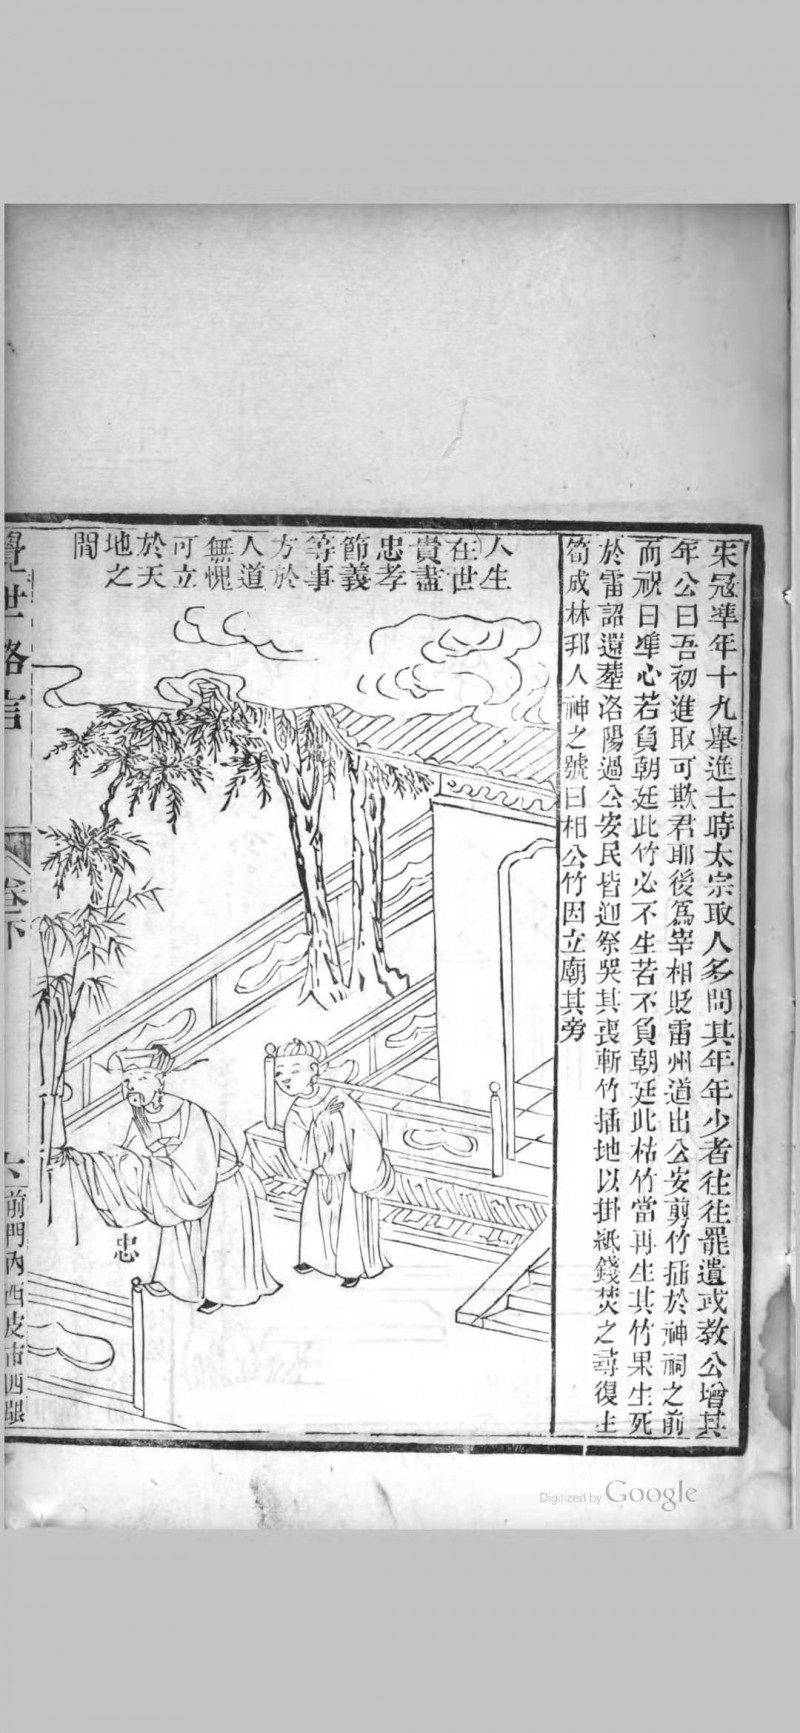 宋冦凖年十九舉進士時太宗取人多問其年年少者往往罷遣或教公增其
年公曰吾初進取可欺君耶後爲宰相貶雷州道出公安剪竹插於神祠之前
而祝曰凖心若負朝廷此竹必不生若不負朝廷此枯竹當再生其竹果生死
於雷詔還塟洛陽過公安民皆迎祭哭其喪斬竹插地以掛紙錢焚之尋復生
筍成林邦人神之號曰相公竹因立廟其旁
人生
在世
貴盡
忠孝
節義
等事
方於
人道
無愧
可立
於天
地之
間
忠
覺世格言
卷下
六
前門內西皮市
Digitized by Google